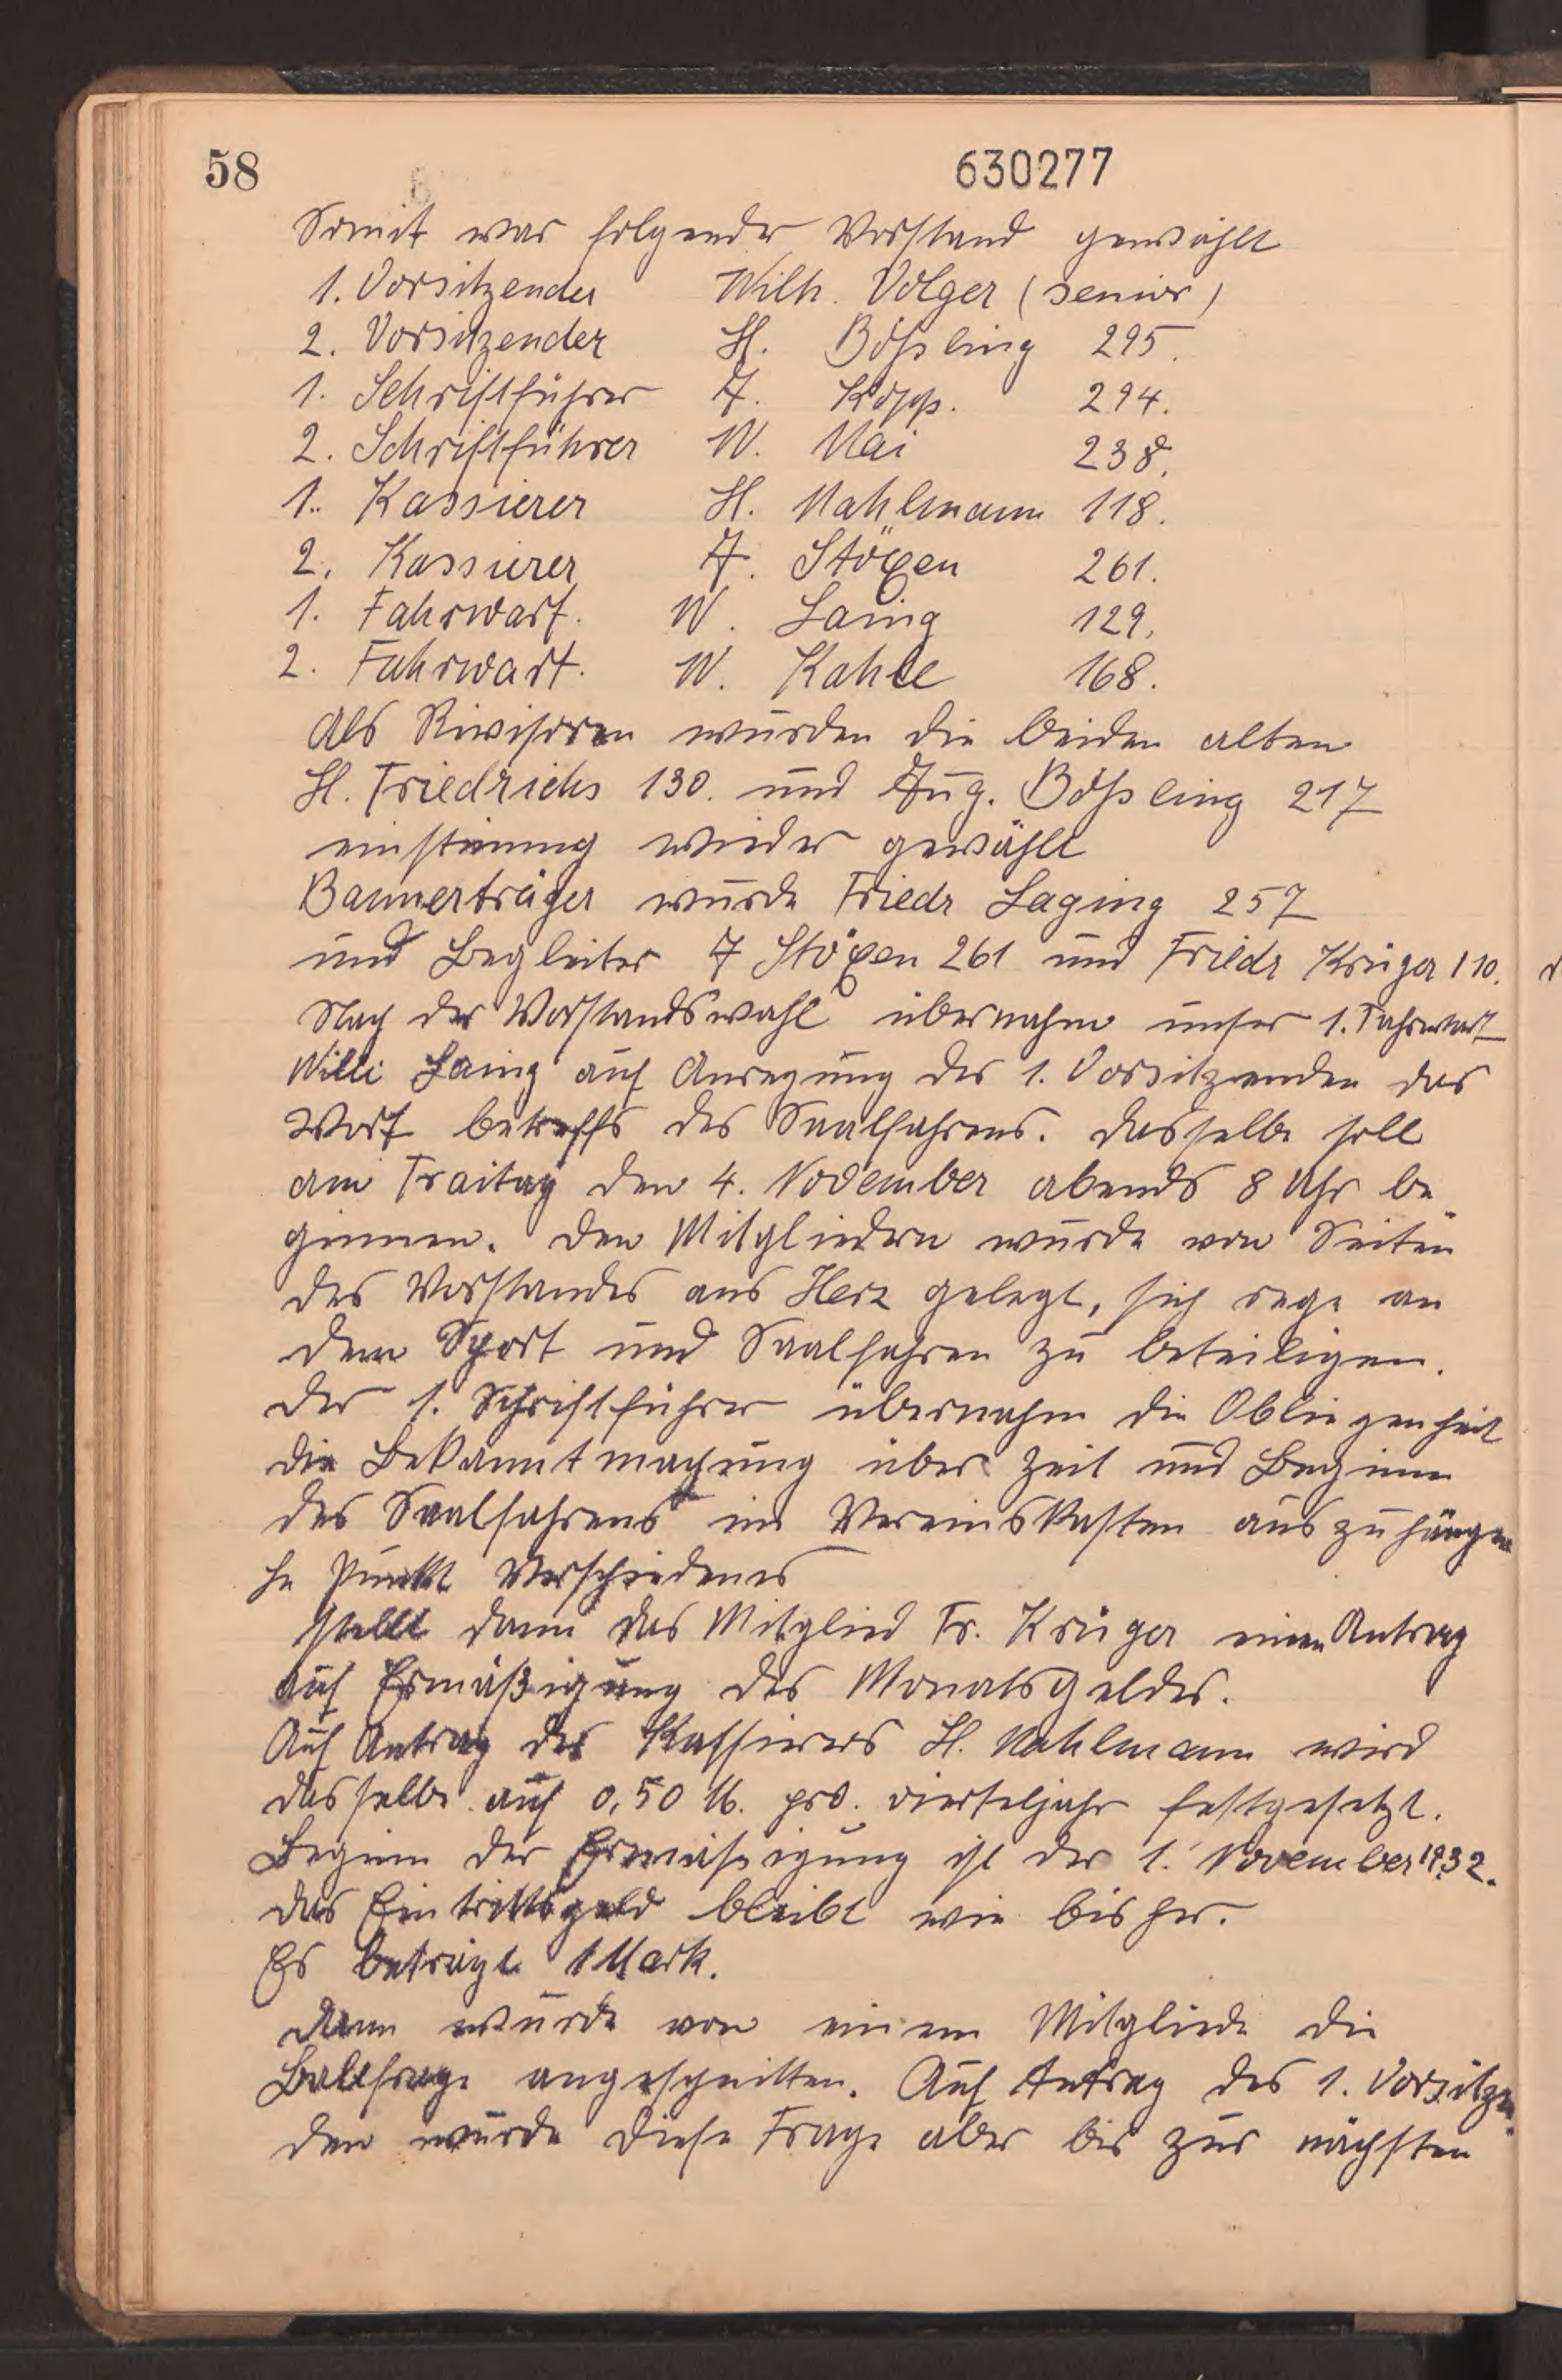 58
630277
Somit war folgender Vorstand gewählt
1. Vorsitzender Wilh. Volger (senior)
2. Vorsitzender H. Bößling 295.
1. Schriftführer A. Kopp. 294.
2. Schriftführer W. Mai 238.
1. Kassierer H. Mahlmann 118.
2. Kassierer A. Stöxen 261.
1. Fahrwart. W. Laing 129.
2. Fahrwart. W. Kahle 168.
Als Rivisoren wurden die beiden alten
H. Friedrichs 130. und Aug. Bößling 217
einstimmig wieder gewählt
Bannerträger wurde Friedr Laging 257
und Begleiter A Stöxen 261 und Friedr Krüger 110.
Nach der Vorstandswahl übernahm unser 1. Fahrwart
Willi Laing auf Anregung des 1. Vorsitzenden das
Wort betreffs des Saalfahrens. Dasselbe soll
am Freitag den 4. November abends 8 Uhr be
ginnen. Den Mitgliedern wurde von Seiten
des Vorstandes ans Herz gelegt, sich rege an
dem Sport und Saalfahren zu beteiligen.
Der 1. Schriftführer übernahm die Obliegenheit
die Bekanntmachung über Zeit und Beginn
des Saalfahrens im Vereinskasten auszuhängen
Im Punkt Verschiedenes
stellt dann das Mitglied Fr. Krüger einen Antrag
auf Ermäßigung des Monatsgeldes.
Auf Antrag des Kassierers H. Mahlmann wird
dasselbe auf 0,50 M. pro. vierteljahr festgesetzt.
Beginn der Ermäßigung ist der 1. November 1932.
Das Eintrittsgeld bleibt wie bisher.
Es beträgt 1 Mark.
Dann wurde von einem Mitgliede die
Ballfrage angeschnitten. Auf Antrag des 1. Vorsitzen
den wurde diese Frage aber bis zur nächsten